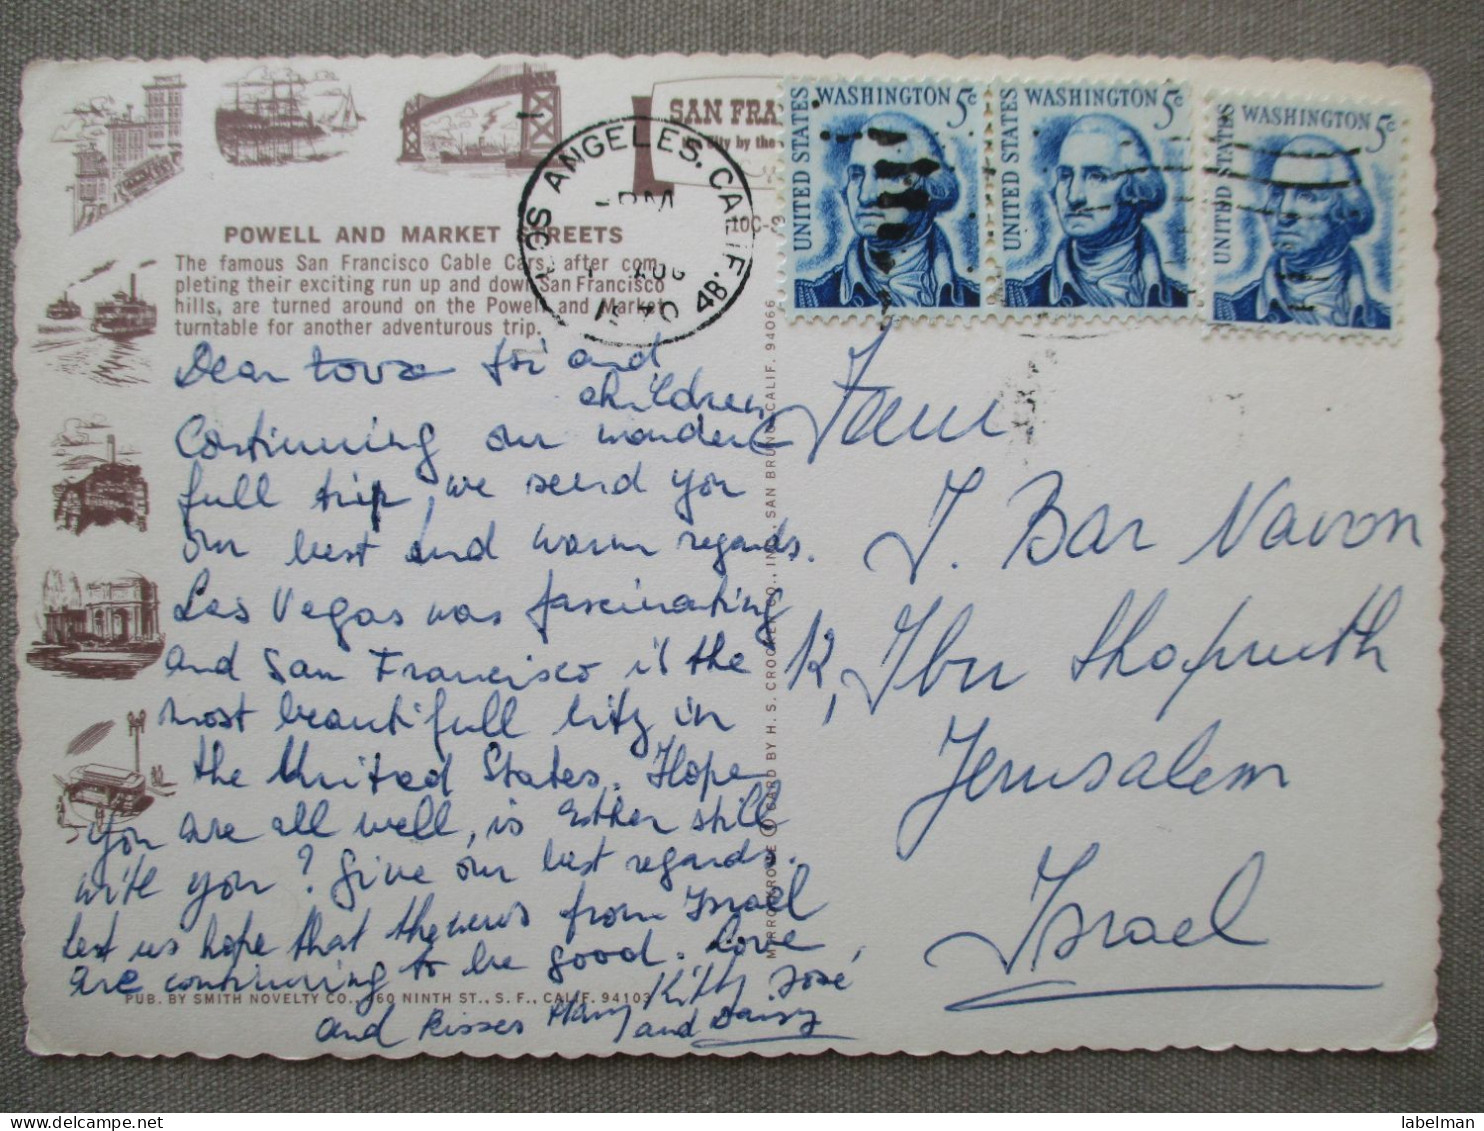 SAN FRA
City by the
WASHINGTON 5c
UNITED STATES
WASHINGTON 5c
UNITED STATES
WASHINGTON 5c
UNITED STATES
LOS ANGELES, CALIF.
PM
AUG
POWELL AND MARKET REETS
The famous San Francisco Cable Cars, after com-
pleting their exciting run up and down San Francisco
hills, are turned around on the Powell and Market
turntable for another adventurous trip.
Dear Tova and
children
Continuing our wonder
full trip, we send you
our best and warm regards.
Las Vegas was fascinating
and San Francisco is the
most beautifull city in
the United States. Hope
you are all well, is Esther still
with you? Give our best regards.
Let us hope that the news from Israel
are continuing to be good. Love
and kisses Kitty José
and Daisy
Fam
J. Bar Navon
12, Ibn
Jerusalem
Israel
MIRRO-KROME ® CARD BY H. S. CROCKER CO., INC., SAN BRUNO, CALIF. 94066
PUB. BY SMITH NOVELTY CO., 460 NINTH ST., S. F., CALIF. 94103
labelman